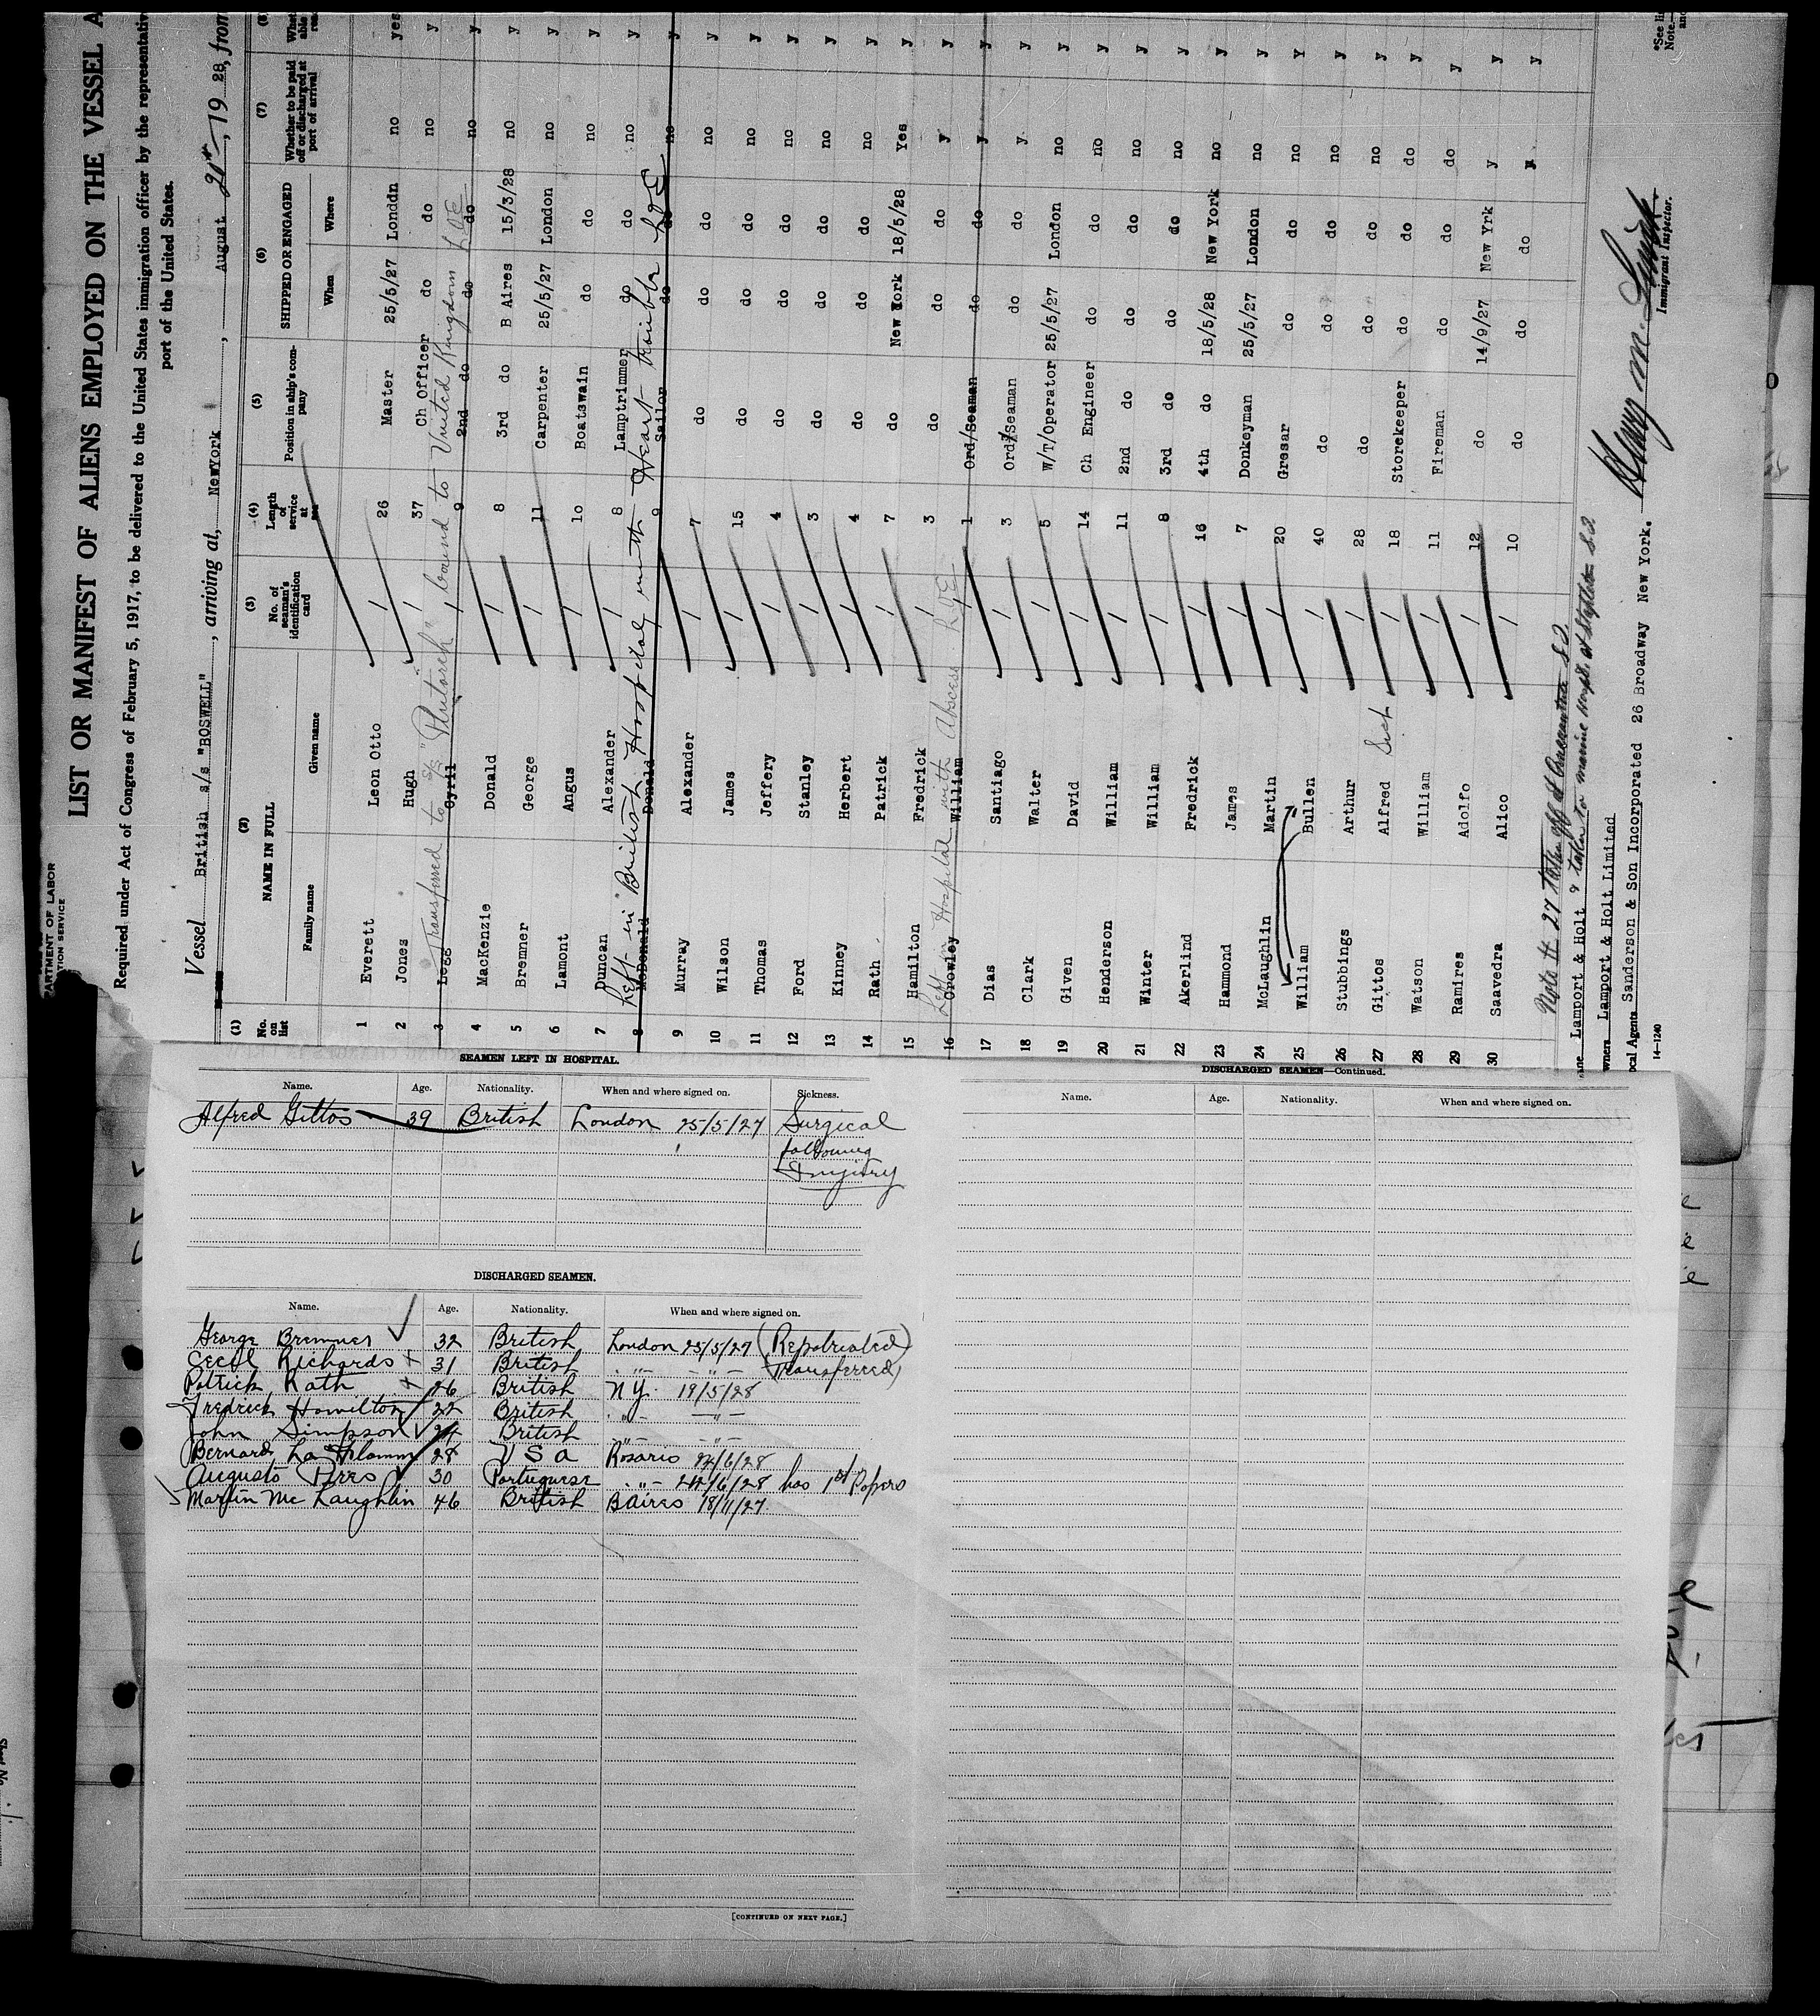 LIST OR MANIFEST OF ALIENS EMPLOYED ON THE VESSEL A
Required under Act of Congress of February 5, 1917, to be delivered to the United States immigration officer by the representativ
port of the United States.
ARTMENT OF LABOR
ATION SERVICE
Vessel British s/s "BOSWELL", arriving at, NewYork, August 21st, 19 28, from
(1) (2) (3) (4) (5) (6) (7)
No. on list NAME IN FULL Family name Given name No. of seaman's identification card Length of service at sea Position in ship's company SHIPPED OR ENGAGED When Where Whether to be paid off or discharged at port of arrival
1 Everett Leon Otto 26 Master 25/5/27 London no yes
2 Jones Hugh 37 Ch Officer do do no y
Transferred to s/s "Plutarch" bound to United Kingdom
3 Legg Cyril 9 2nd do do do no y
4 MacKenzie Donald 8 3rd do B Aires 15/3/28 no y
5 Bremner George 11 Carpenter 25/5/27 London no y
6 Lamont Angus 10 Boatswain do do no y
7 Duncan Alexander 8 Lamptrimmer do do no y
Left in British Hospital with Heart trouble
8 McDonald Donald 9 Sailor do do no y
9 Murray Alexander 7 do do do no y
10 Wilson James 15 do do do no y
11 Thomas Jeffery 4 do do do no y
12 Ford Stanley 3 do do do no y
13 Kinney Herbert 4 do do do no y
14 Rath Patrick 7 do New York 18/5/28 Yes y
15 Hamilton Fredrick 3 do do do y y
Left in Hospital with Abscess
16 Crowley William 1 Ord/Seaman do do y y
17 Dias Santiago 3 Ord/Seaman do do y y
18 Clark Walter 5 W/T/Operator 25/5/27 London no y
19 Given David 14 Ch Engineer do do no y
20 Henderson William 11 2nd do do do no y
21 Winter William 8 3rd do do do no y
22 Akerlind Fredrick 16 4th do 18/5/28 New York no y
23 Hammond James 7 Donkeyman 25/5/27 London no y
24 McLaughlin Martin 20 Gresar do do no Y
25 William Bullen 40 do do do no y
26 Stubbings Arthur 28 do do do no y
27 Gittos Alfred Sick 18 Storekeeper do do do y
28 Watson William 11 Fireman do do do y
29 Ramires Adolfo 12 do 14/9/27 New Yrk y y
30 Saavedra Alico 10 do do do y y
Note # 27 Taken off at Quarantine S.I.
& taken to marine Hospt. at Stapleton S.I.
Lamport & Holt
wners Lamport & Holt Limited
ocal Agents Sanderson & Son Incorporated 26 Broadway New York.
Immigrant Inspector.
14—1240
SEAMEN LEFT IN HOSPITAL.
Name. Age. Nationality. When and where signed on. Sickness.
Alfred Gittos 39 British London 25/5/27 Surgical
following
Injury
DISCHARGED SEAMEN.
Name. Age. Nationality. When and where signed on.
George Bremner 32 British London 25/5/27 (Repatriated)
Cecil Richards 31 British " " Transferred)
Patrick Rath 26 British N.Y. 19/5/28
Fredrick Hamilton 22 British " "
John Simpson 24 British " "
Bernard 28 U S A Rosario 22/6/28
Augusto Pires 30 Portuguese " 22/6/28 has 1st Papers
Martin Mc Laughlin 46 British B Aires 18/11/27
[CONTINUED ON NEXT PAGE.]
DISCHARGED SEAMEN—Continued.
Name. Age. Nationality. When and where signed on.